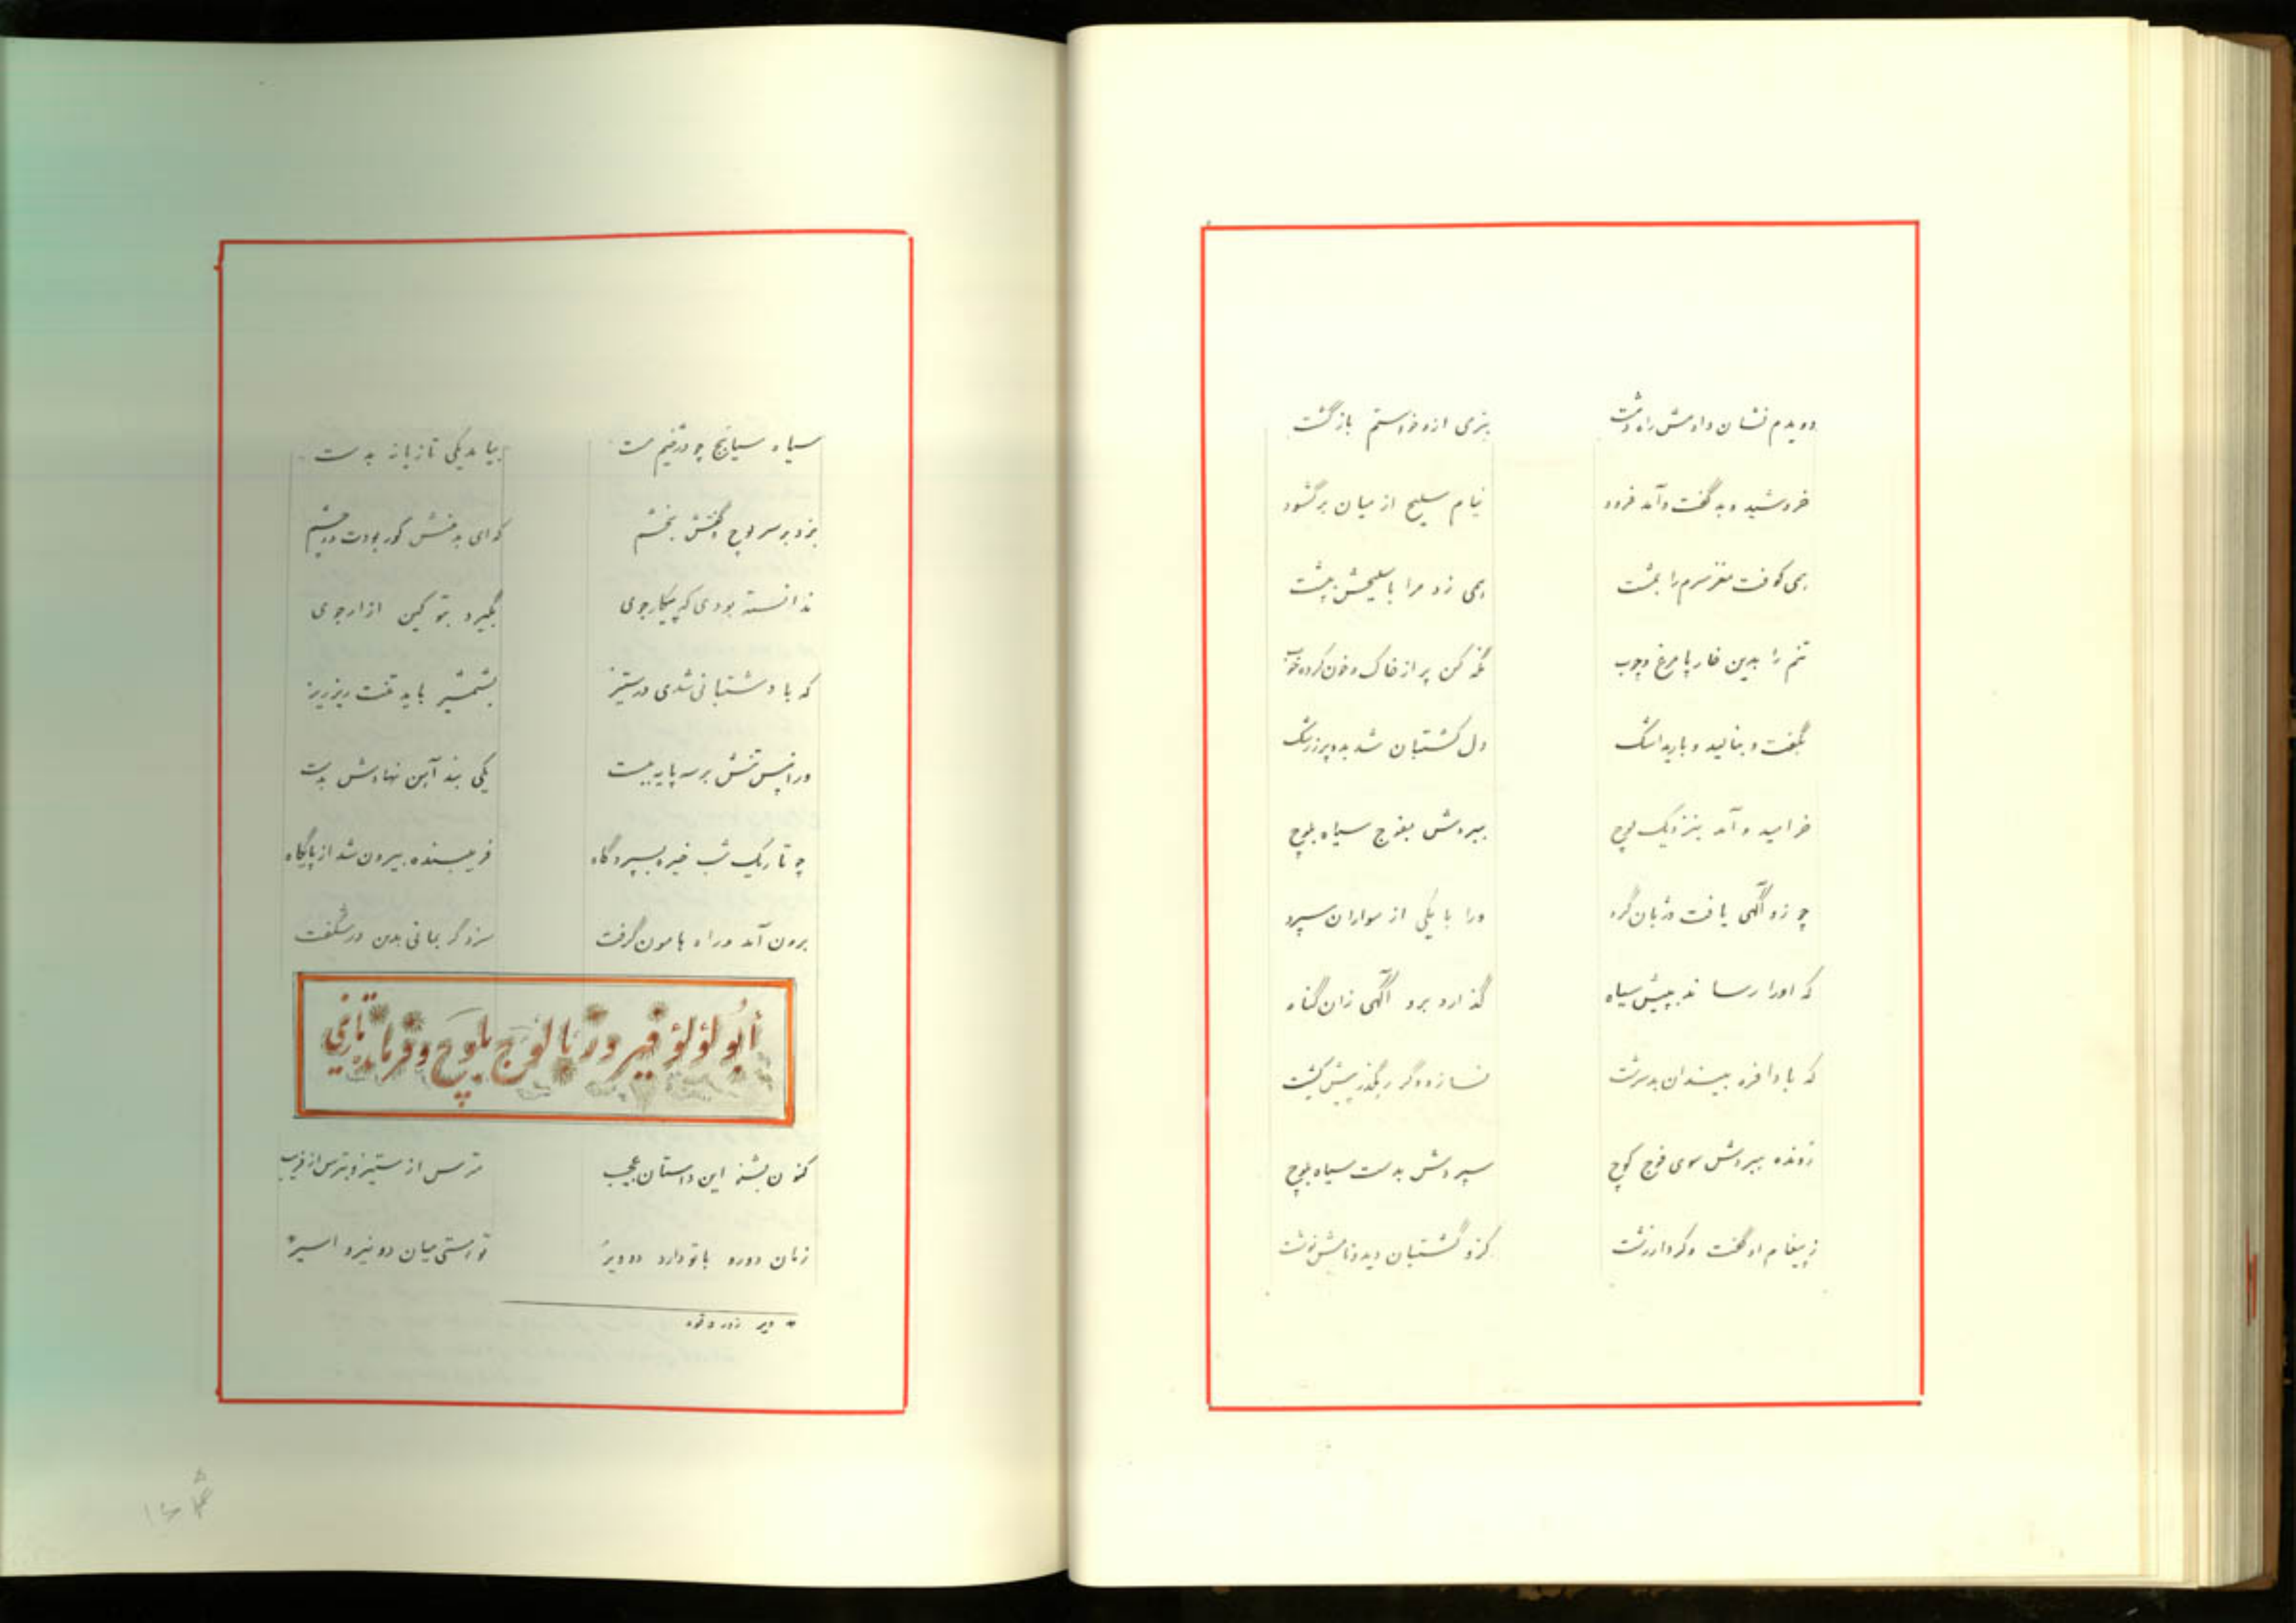 دویدم نشان دادمش راه دشت بنرمی ازو خواستم بازگشت
خروشید و بد گفت و آمد فرود نیام سلیح از میان برگشود
همی کوفت مغز سرم را بمشت همی زد مرا با سلیحش بپشت
تنم را بدین خار پا مرغ و چوب نگه کن پر از خاک و خون کرده خوب
بگفت و بنالید و بارید اشک دل کشتبان شد بدو پر زرشک
خرامید و آمد بنزدیک لوچ ببردش بفوج سپاه بلوچ
چو زو آگهی یافت دژبان گرد ورا با یکی از سواران سپرد
که او را رساند بپیش سپاه گذارد برو آگهی زان گناه
که بادافره بیند آن بدسرشت نسازد دگر رهگذر پیش کشت
زونده ببردش سوی فوج کوچ سپردش بدست سپاه بلوچ
ز پیغام او گفت و کردار زشت کزو کشتبان دید و نامش نوشت
سیاه سیانج چو دژخیم مست بیامد یکی تازیانه بدست
بزد بر سر لوچ و گفتش بخشم که ای بدمنش کور بودت دو چشم
ندانسته بودی که پیکارجوی بگیرد بتو کین ازار جوی
که با دشتبانی شدی در ستیز بشمشیر باید تنت ریز ریز
ورا پس تنش بر سه پایه ببست یکی بند آهن نهادش بدست
چو تاریک شب خیره بسپرد گاه فریبنده بیرون شد از پایگاه
برون آمد و راه هامون گرفت سزد گر بمانی بدین در شگفت
أبو لؤلؤ فیروز نا لوچ بلوچ و فرمانده تازی
کنون بشنو این داستان عجیب مترس از ستیز و بترس از فریب
زمان دورو با تو دارد دو ویر* تو هستی میان دو نیرو اسیر
* ویر زور و قوه